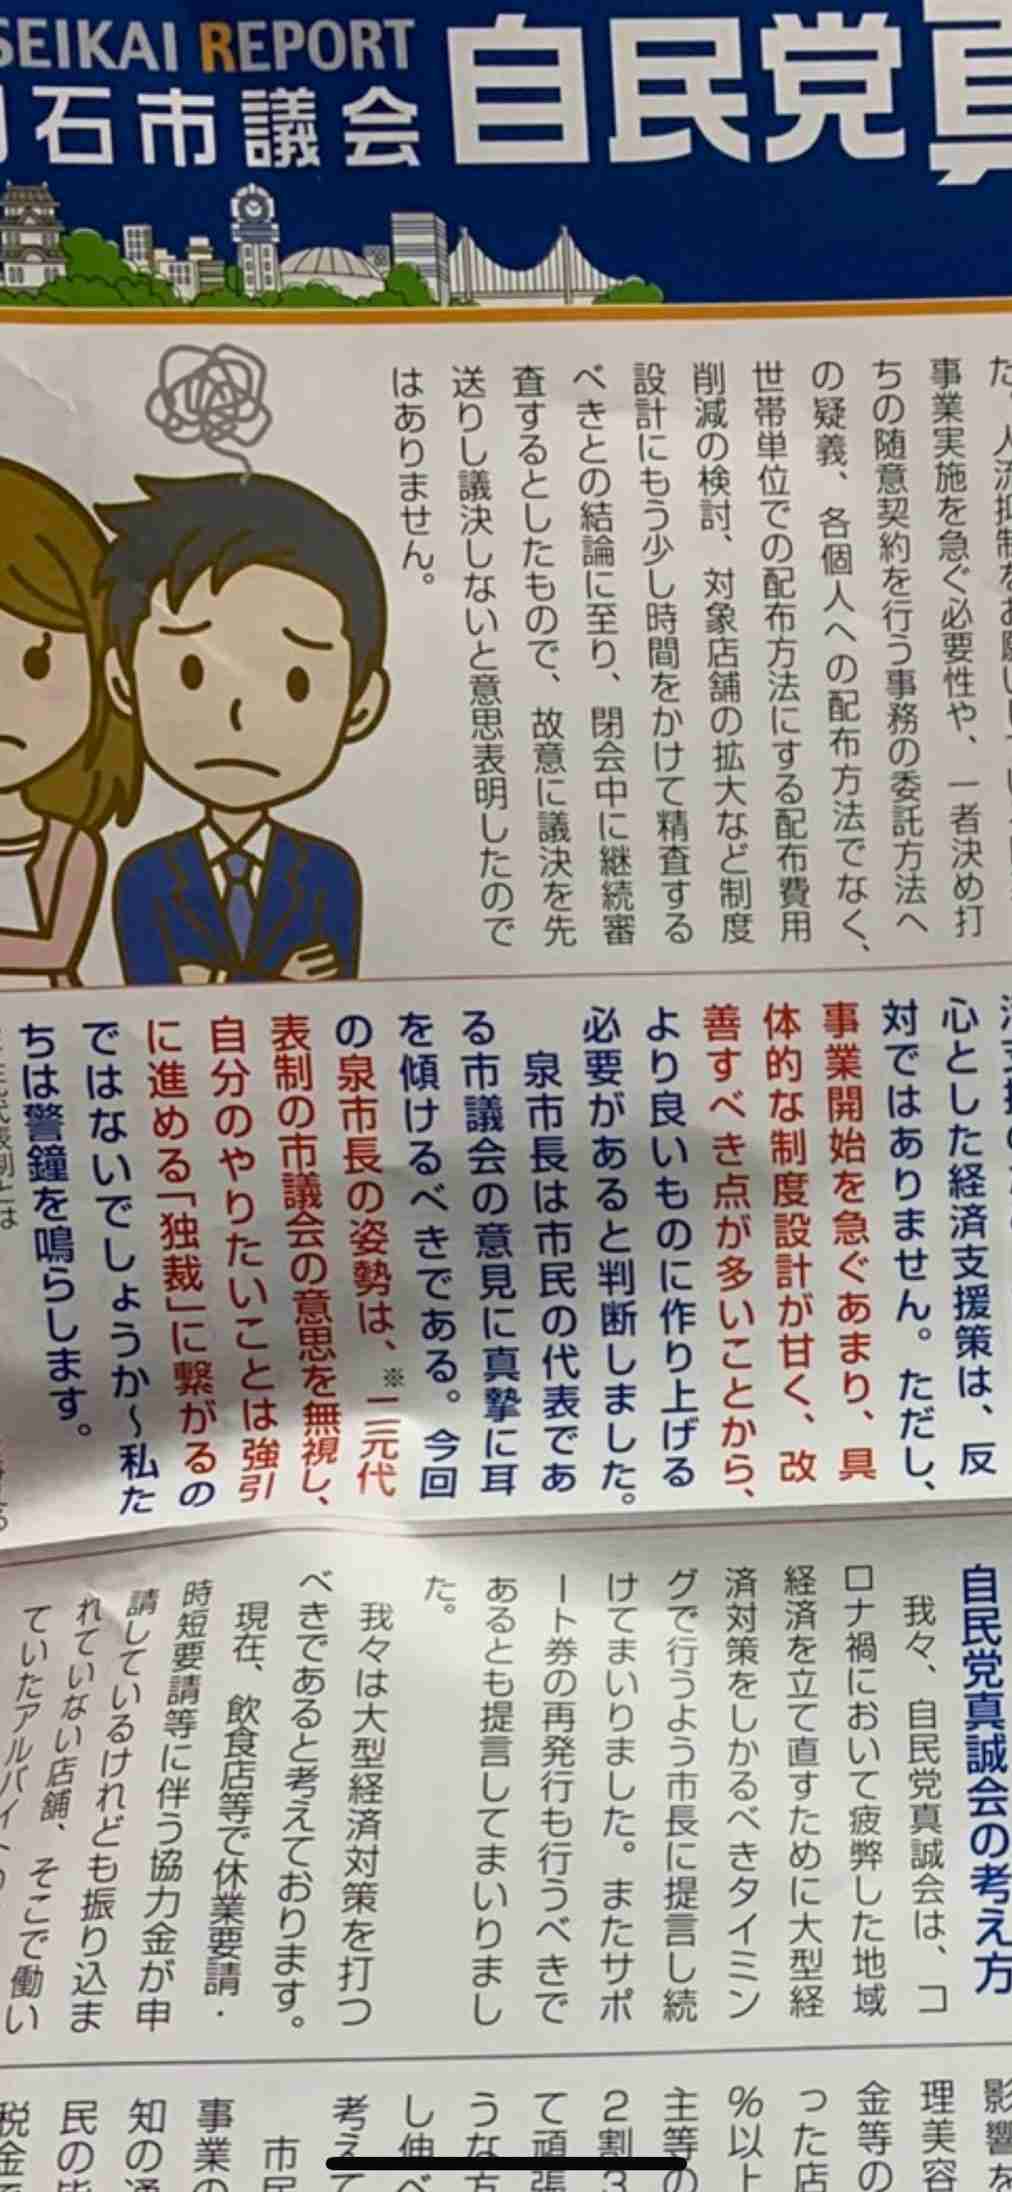 SEIKAI REPORT
石市議会
自民党真
事業実施を急ぐ必要性や、一者決め打
ちの随意契約を行う事務の委託方法へ
の疑義、各個人への配布方法でなく、
世帯単位での配布方法にする配布費用
削減の検討、対象店舗の拡大など制度
設計にもう少し時間をかけて精査する
べきとの結論に至り、閉会中に継続審
査するとしたもので、故意に議決を先
送りし議決しないと意思表明したので
はありません。
心とした経済支援策は、反
対ではありません。ただし、
事業開始を急ぐあまり、具
体的な制度設計が甘く、改
善すべき点が多いことから、
より良いものに作り上げる
必要があると判断しました。
泉市長は市民の代表であ
る市議会の意見に真摯に耳
を傾けるべきである。今回
の泉市長の姿勢は、※二元代
表制の市議会の意思を無視し、
自分のやりたいことは強引
に進める「独裁」に繋がるの
ではないでしょうか～私た
ちは警鐘を鳴らします。
自民党真誠会の考え方
我々、自民党真誠会は、コ
ロナ禍において疲弊した地域
経済を立て直すために大型経
済対策をしかるべきタイミン
グで行うよう市長に提言し続
けてまいりました。またサポ
ート券の再発行も行うべきで
あるとも提言してまいりまし
た。
我々は大型経済対策を打つ
べきであると考えております。
現在、飲食店等で休業要請・
時短要請等に伴う協力金が申
請しているけれども振り込ま
れていない店舗、そこで働い
ていたアルバイト
影響を
理美容
金等の
った店
%以上
主等の
2割3
て頑張
うな方
し伸べ
考えて
市民
事業の
知の通
民の皆
税金で